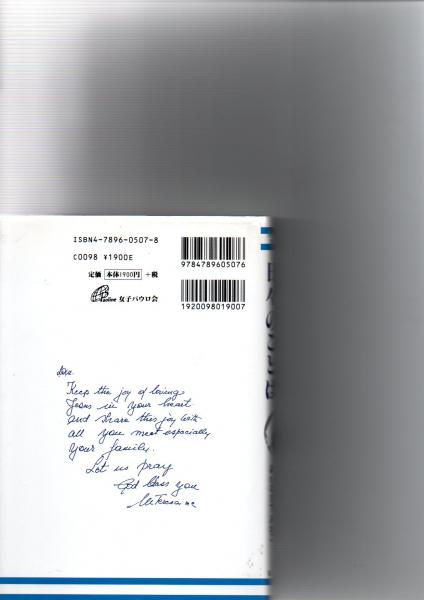 ISBN4-7896-0507-8
C0098 ¥1900E
定価 本体1900円 +税
女子パウロ会
9784789605076
1920098019007
Keep the joy of loving
Jesus in your heart
and share this joy with
all you meet especially
your family.
Let us pray
God bless you
M Teresa mc